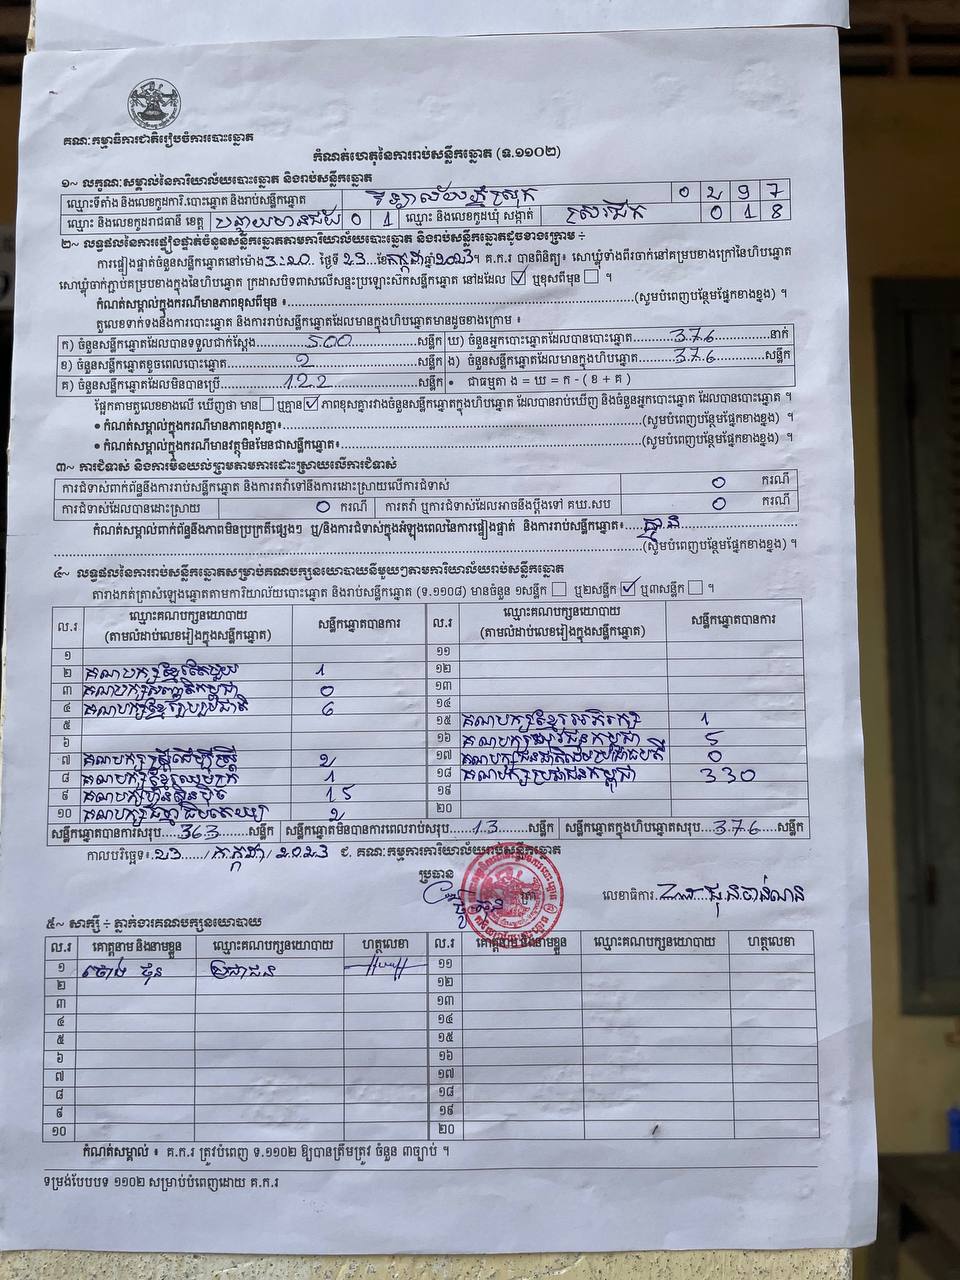 គណៈកម្មាធិការជាតិរៀបចំការបោះឆ្នោត
កំណត់ហេតុនៃការរាប់សន្លឹកឆ្នោត (ទ.១១០២)
១~ លក្ខណៈសម្គាល់នៃការិយាល័យបោះឆ្នោត និងរាប់សន្លឹកឆ្នោត
ឈ្មោះទីតាំង និងលេខកូដការិ.បោះឆ្នោត និងរាប់សន្លឹកឆ្នោត វិទ្យាល័យភ្នំស្រុក 0 2 9 7
ឈ្មោះ និងលេខកូដរាជធានី ខេត្ត បន្ទាយមានជ័យ 0 1 ឈ្មោះ និងលេខកូដឃុំ សង្កាត់ ស្រះជីក 0 1 8
២~ លទ្ធផលនៃការផ្ទៀងផ្ទាត់ចំនួនសន្លឹកឆ្នោតតាមការិយាល័យបោះឆ្នោត និងរាប់សន្លឹកឆ្នោតដូចខាងក្រោម ÷
ការផ្ទៀងផ្ទាត់ចំនួនសន្លឹកឆ្នោតនៅម៉ោង 3:20 ថ្ងៃទី 23 ខែ កក្កដា ឆ្នាំ 2023។ គ.ក.រ បានពិនិត្យ៖ សោឃ្មុំទាំងពីរចាក់នៅគម្របខាងក្រៅនៃហិបឆ្នោត
សោឃ្មុំចាក់ភ្ជាប់គម្របខាងក្នុងនៃហិបឆ្នោត ក្រដាសបិទពាសលើសន្ទះប្រឡោះស៊កសន្លឹកឆ្នោត នៅដដែល ☑ ឬខុសពីមុន ☐ ។
កំណត់សម្គាល់ក្នុងករណីមានភាពខុសពីមុន ៖ (សូមបំពេញបន្ថែមផ្នែកខាងខ្នង) ។
តួលេខទាក់ទងនឹងការបោះឆ្នោត និងការរាប់សន្លឹកឆ្នោតដែលមានក្នុងហិបឆ្នោតមានដូចខាងក្រោម ៖
ក) ចំនួនសន្លឹកឆ្នោតដែលបានទទួលជាក់ស្តែង 500 សន្លឹក ឃ) ចំនួនអ្នកបោះឆ្នោតដែលបានបោះឆ្នោត 376 នាក់
ខ) ចំនួនសន្លឹកឆ្នោតខូចពេលបោះឆ្នោត 2 សន្លឹក ង) ចំនួនសន្លឹកឆ្នោតដែលមានក្នុងហិបឆ្នោត 376 សន្លឹក
គ) ចំនួនសន្លឹកឆ្នោតដែលមិនបានប្រើ 122 សន្លឹក • ជាធម្មតា ង = ឃ = ក - ( ខ + គ )
ផ្អែកតាមតួលេខខាងលើ ឃើញថា មាន ☐ ឬគ្មាន ☑ ភាពខុសគ្នារវាងចំនួនសន្លឹកឆ្នោតក្នុងហិបឆ្នោត ដែលបានរាប់ឃើញ និងចំនួនអ្នកបោះឆ្នោត ដែលបានបោះឆ្នោត ។
• កំណត់សម្គាល់ក្នុងករណីមានភាពខុសគ្នា៖ (សូមបំពេញបន្ថែមផ្នែកខាងខ្នង) ។
• កំណត់សម្គាល់ក្នុងករណីមានវត្ថុមិនមែនជាសន្លឹកឆ្នោត៖ (សូមបំពេញបន្ថែមផ្នែកខាងខ្នង) ។
៣~ ការជំទាស់ និងការមិនយល់ព្រមតាមការដោះស្រាយលើការជំទាស់
ការជំទាស់ពាក់ព័ន្ធនឹងការរាប់សន្លឹកឆ្នោត និងការតវ៉ាទៅនឹងការដោះស្រាយលើការជំទាស់ 0 ករណី
ការជំទាស់ដែលបានដោះស្រាយ 0 ករណី ការតវ៉ា ឬការជំទាស់ដែលអាចនឹងប្តឹងទៅ គឃ.សប 0 ករណី
កំណត់សម្គាល់ពាក់ព័ន្ធនឹងភាពមិនប្រក្រតីផ្សេងៗ ឬ/និងការជំទាស់ក្នុងអំឡុងពេលនៃការផ្ទៀងផ្ទាត់ និងការរាប់សន្លឹកឆ្នោត៖ គ្មាន
(សូមបំពេញបន្ថែមផ្នែកខាងខ្នង) ។
៤~ លទ្ធផលនៃការរាប់សន្លឹកឆ្នោតសម្រាប់គណបក្សនយោបាយនីមួយៗតាមការិយាល័យរាប់សន្លឹកឆ្នោត
តារាងកត់ត្រាសំឡេងឆ្នោតតាមការិយាល័យបោះឆ្នោត និងរាប់សន្លឹកឆ្នោត (ទ.១១០៨) មានចំនួន ១សន្លឹក ☐ ឬ២សន្លឹក ☑ ឬ៣សន្លឹក ☐ ។
ល.រ ឈ្មោះគណបក្សនយោបាយ (តាមលំដាប់លេខរៀងក្នុងសន្លឹកឆ្នោត) សន្លឹកឆ្នោតបានការ ល.រ ឈ្មោះគណបក្សនយោបាយ (តាមលំដាប់លេខរៀងក្នុងសន្លឹកឆ្នោត) សន្លឹកឆ្នោតបានការ
១ ១១
២ គណបក្សខ្មែរតែមួយ 1 ១២
៣ គណបក្សសញ្ជាតិកម្ពុជា 0 ១៣
៤ គណបក្សខ្មែររួបរួមជាតិ 6 ១៤
៥ ១៥ គណបក្សខ្មែរអភិរក្ស 1
៦ ១៦ គណបក្សយុវជនកម្ពុជា 5
៧ គណបក្សស្ត្រីដើម្បីស្ត្រី 2 ១៧ គណបក្សជនជាតិដើមប្រជាធិបតេយ្យ 0
៨ គណបក្សខ្មែរឈប់ក្រ 1 ១៨ គណបក្សប្រជាជនកម្ពុជា 330
៩ គណបក្សហ្វ៊ុនស៊ិនប៉ិច 15 ១៩
១០ គណបក្សធម្មាធិបតេយ្យ 2 ២០
សន្លឹកឆ្នោតបានការសរុប 363 សន្លឹក សន្លឹកឆ្នោតមិនបានការពេលរាប់សរុប 13 សន្លឹក សន្លឹកឆ្នោតក្នុងហិបឆ្នោតសរុប 376 សន្លឹក
កាលបរិច្ឆេទ៖ 23 / កក្កដា / 2023 ជ. គណៈកម្មការការិយាល័យរាប់សន្លឹកឆ្នោត
ប្រធាន
លេខាធិការ
៥~ សាក្សី ÷ ភ្នាក់ងារគណបក្សនយោបាយ
ល.រ គោត្តនាម និងនាមខ្លួន ឈ្មោះគណបក្សនយោបាយ ហត្ថលេខា ល.រ គោត្តនាម និងនាមខ្លួន ឈ្មោះគណបក្សនយោបាយ ហត្ថលេខា
១ ប្រជាជន ១១
២ ១២
៣ ១៣
៤ ១៤
៥ ១៥
៦ ១៦
៧ ១៧
៨ ១៨
៩ ១៩
១០ ២០
កំណត់សម្គាល់ ៖ គ.ក.រ ត្រូវបំពេញ ទ.១១០២ ឱ្យបានត្រឹមត្រូវ ចំនួន ៣ច្បាប់ ។
ទម្រង់បែបបទ ១១០២ សម្រាប់បំពេញដោយ គ.ក.រ